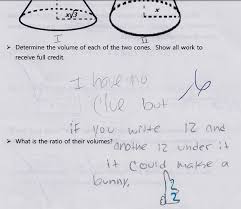 x√3
x
I
II
➤ Determine the volume of each of the two cones. Show all work to
receive full credit.
I have no
Clue but
if you write 12 and
➤ What is the ratio of their volumes?
anothe 12 under it
it could make a
bunny.
12
12